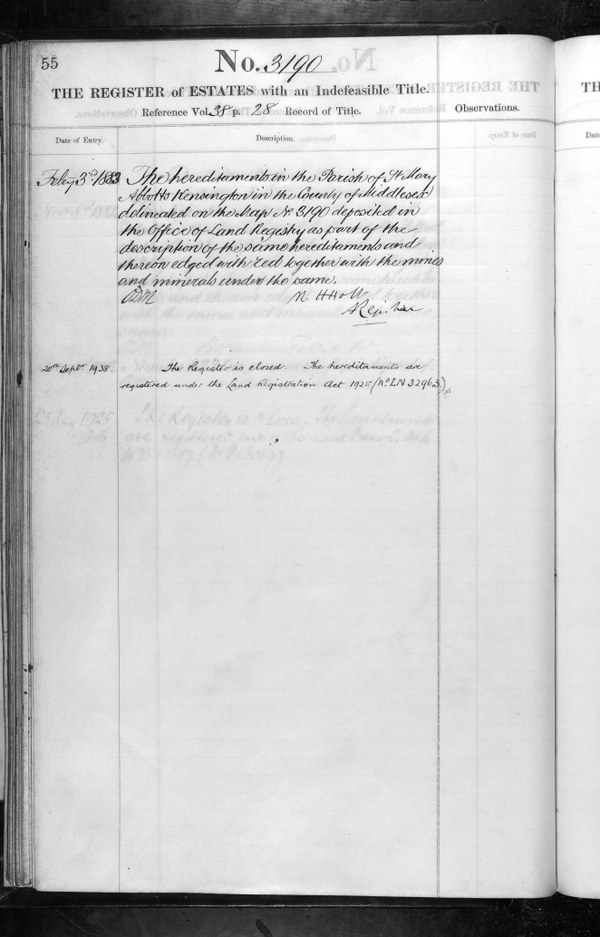 55
No. 3190
THE REGISTER of ESTATES with an Indefeasible Title.
Reference Vol. 38 p. 28 Record of Title.
Observations.
Date of Entry.
Description.
Feby 3rd 1883
The hereditaments in the Parish of St Mary
Abbotts Kensington in the County of Middlesex
delineated on the Map No 3190 deposited in
the Office of Land Registry as part of the
description of the same hereditaments and
thereon edged with red together with the mines
and minerals under the same.
Registrar
20th Septr 1938.
The Register is closed. The hereditaments are
registered under the Land Registration Act 1925 (No LN 32963.)
TH
Date